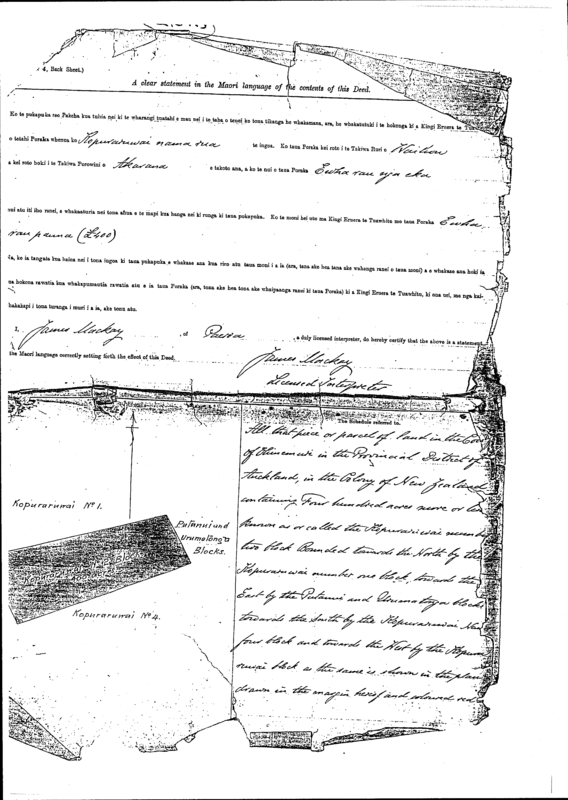 Back Sheet.)
A clear statement in the Maori language of the contents of this Deed.
Ko te pukapuka reo Pakeha kua tuhia nei ki te wharangi tuatahi e mau nei i te taha o tenei ko tona tikanga he whakamana, ara, he whakatutuki i te hokonga ki a Kingi Eruera te
o tetahi Poraka whenua ko Kopuraruwai nama rua te ingoa. Ko taua Poraka kei roto i te Takiwa Ruri o
a kei roto hoki i te Takiwa Porowini o Akarana e takoto ana, a ko te nui o taua Poraka Ewha rau eja eka
nui atu iti iho ranei, e whakaaturia nei tona ahua e te mapi kua hanga nei ki runga ki taua pukapuka. Ko te moni kei utu ma Kingi Eruera te Tuawhitu mo taua Poraka Ewha
rau pauna (£400)
ko ia tangata kua haina nei i tona ingoa ki taua pukapuka e whakaae ana kua riro atu taua moni i a ia (ara, tana ake hea tana ake wahanga ranei o taua moni) a e whakaae ana hoki ia
hokona rawatia kua whakapumautia rawatia atu e ia taua Poraka (ara, tona ake hea tona ake whaipaanga ranei ki taua Poraka) ki a Kingi Eruera te Tuawhitu, ki ona uri, me nga kai-
whakakapi i tona turanga i muri i a ia, ake tonu atu.
I, James Mackay of Paeroa, a duly licensed interpreter, do hereby certify that the above is a statement
the Maori language correctly setting forth the effect of this Deed.
James Mackay
Licensed Interpreter
The Schedule referred to.
All that piece or parcel of land in the
of Ohinemuri in the Provincial District of
Auckland, in the Colony of New Zealand
containing Four hundred acres more or less
known as or called the Kopuraruwai number
two block Bounded towards the North by the
Kopuraruwai number one block, towards the
East by the Putanui and Urumatonga blocks
towards the South by the Kopuraruwai
four block and towards the West by the
block as the same is shown in the plan
drawn in the margin hereof and coloured red
Kopuraruwai No 1.
Putanui and
Urumatonga
Blocks.
Kopuraruwai No 4.